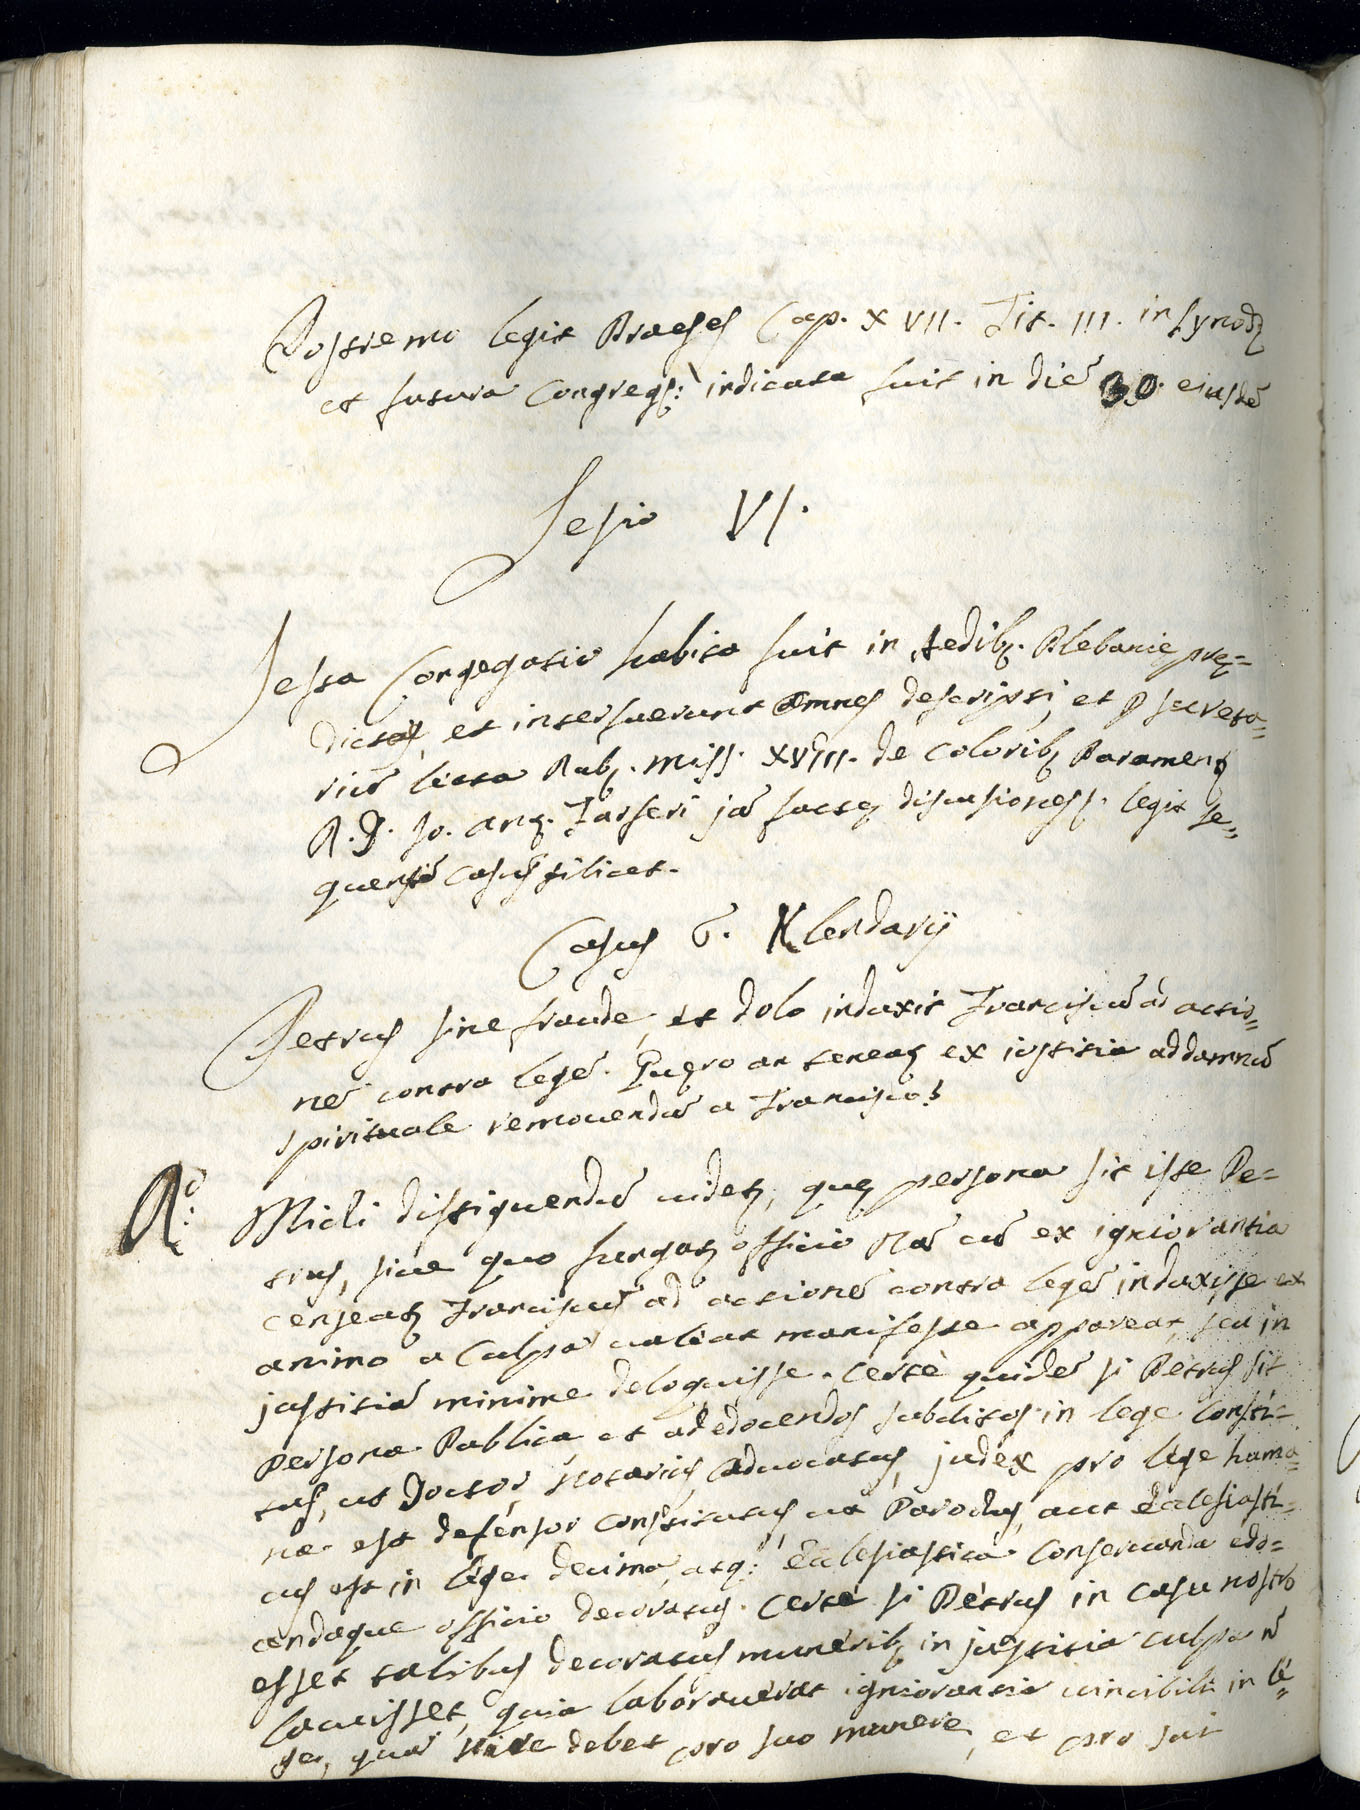 Postremo legit Praeses Cap. XVII. Tit. III. in synodo
et futura Congregã: indicata fuit in diẽ 30. eiusdẽ
Sesio VI.
Sesta Congregatio habita fuit in Aedib9. Plebanię prę=
dictae, et interfuerunt omnes descripti, et p secreta=
riũ lecta Rub. Miss. XVIII. de Coloribq Parament
R. D. Jo. Ang. Farseri jã factę discusiones. legit se=
quentẽ casũ silicet.
Casus 6. Klendarij
Petrus sine fraude, et dolo induxit Franciscũ ad actio=
nẽ contra legẽ. Quęro an teneat ex iustitia ad damnũ
spirituale remouendũ a Francisco?
Rο: Michi distiguendũ uidet, quę persona sit iste Pe=
trus, siue quo fungat officio Nã cũ ex igniorantia
censeat Franciscũ ad actionẽ contra legẽ induxisse ex
animo a Culpa ualeat manifeste appareat, seu in
justitiã minime deloquisse. Certè quidẽ si Petrus sit
persona Publica, et ad edocendos subditos in lege consti=
tus, ut Doctor, Notarius, Aduocatus, judex pro lege huma=
na est defensor constitutus ut Parochus, aut Ecclesiasti=
cus est in lege diuina, atq: Ecclesiastica conseruanda edo=
cendaque officio decoratus. Certè si Petrus in casu nostro
esset talibus decoratus muneribq in justitia culpa nõ
uacuisset, quia laborauerat igniorantia uincibili in le=
ge, quã scire debet pro suo munere, et pro sui